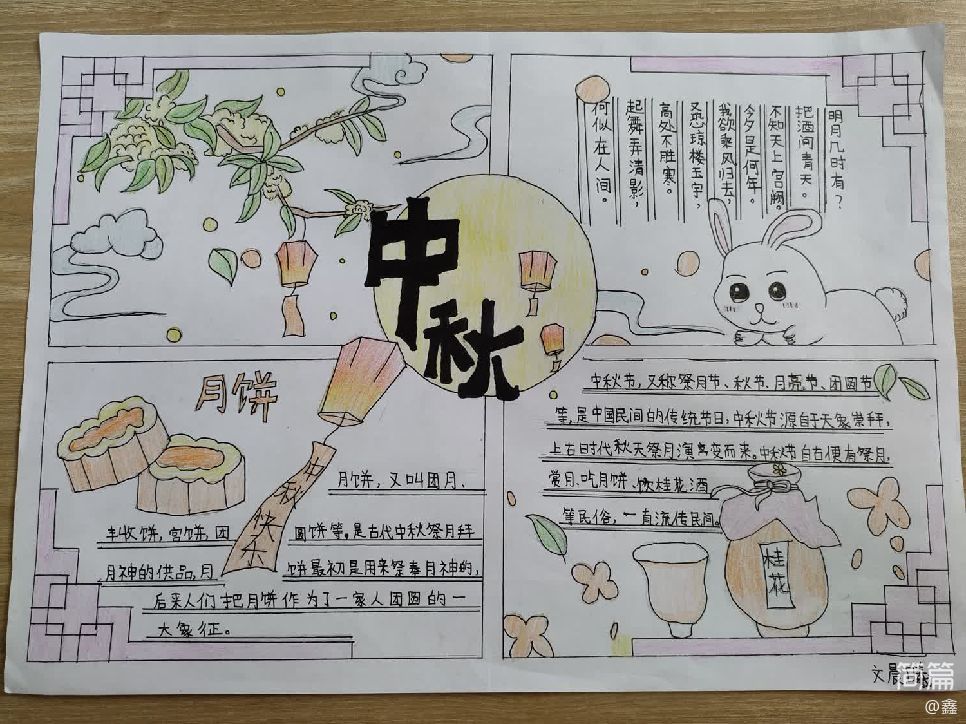 中秋
明月几时有？
把酒问青天。
不知天上宫阙。
今夕是何年。
我欲乘风归去，
又恐琼楼玉宇，
高处不胜寒。
起舞弄清影，
何似在人间。
月饼
月饼，又叫团月、
丰收饼，宫饼，团圆饼等。是古代中秋祭月拜
月神的供品。月饼最初是用来祭奉月神的，
后来人们把月饼作为了一家人团圆的一
大象征。
中秋快乐
中秋节，又称祭月节、秋节、月亮节、团圆节
等，是中国民间的传统节日，中秋节源自于天象崇拜，
上古时代秋天祭月演变而来。中秋节自古便有祭月、
赏月、吃月饼、饮桂花酒
等民俗，一直流传民间。
桂花
文晨
简篇
@鑫